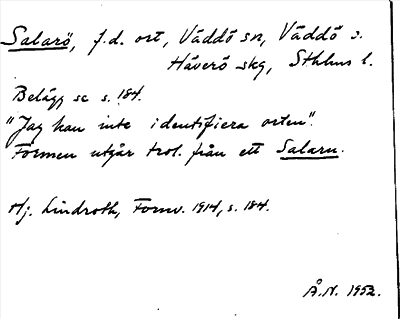 Salarö, f.d. ort, Väddö sn, Väddö o.
Häverö skg, Sthlms l.
Belägg se s. 184.
"Jag kan inte identifiera orten".
Formen utgår trol. från ett Salaru.
Hj. Lindroth, Fornv. 1914, s. 184.
Å.N. 1952.